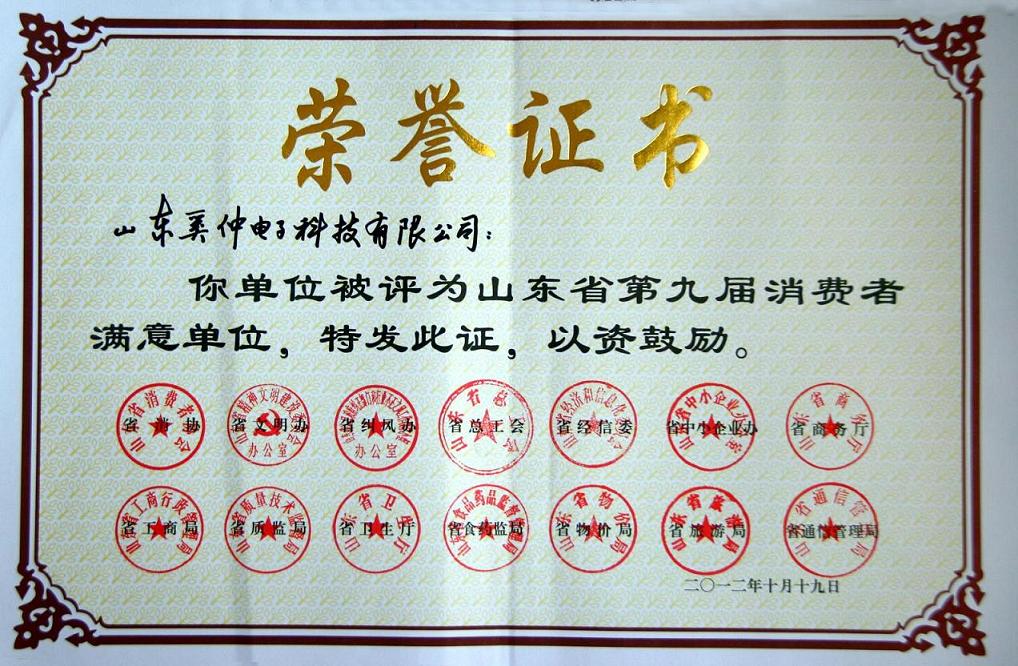 荣誉证书
山东奕仲电子科技有限公司：
你单位被评为山东省第九届消费者
满意单位，特发此证，以资鼓励。
省消协 省文明办 省纠风办 省总工会 省经信委 省中小企业办 省商务厅
省工商局 省质监局 省卫生厅 省食药监局 省物价局 省旅游局 省通信管理局
二〇一二年十月十九日